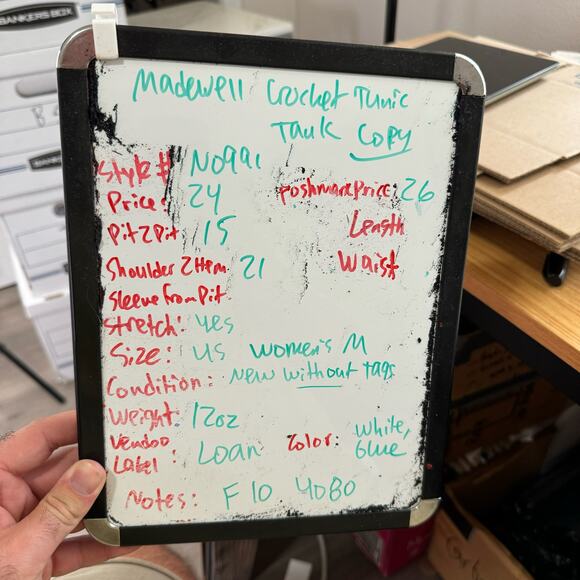 BANKERS BOX
BANKERS
Madewell Crocket Tunic
Tank Copy
Style #: N0991
Price: 24
Poshmark Price: 26
Pit2Pit: 15
Length
Shoulder 2 Hem 21
Waist
Sleeve from Pit
Stretch: yes
Size: US Women's M
Condition: New without tags
Weight: 12oz
Vendoo
Label: Loan
Color: white,
blue
Notes: F10 4080